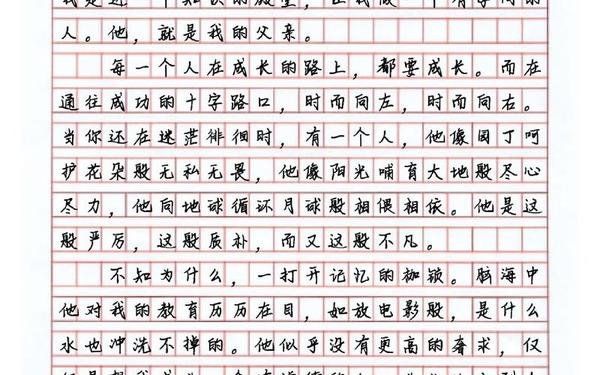 人。他，就是我的父亲。
每一个人在成长的路上，都要成长。而在
通往成功的十字路口，时而向左，时而向右。
当你还在迷茫徘徊时，有一个人，他像园丁呵
护花朵般无私无畏，他像阳光哺育大地般尽心
尽力，他向地球循环月球般相偎相依。他是这
般严厉，这般质朴，而又这般不凡。
不知为什么，一打开记忆的枷锁。脑海中
他对我的教育历历在目，如放电影般，是什么
水也冲洗不掉的。他似乎没有更高的奢求，仅